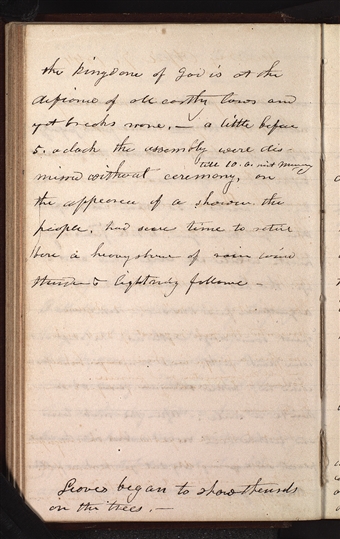 the kingdome of god is at the
defience of all earthly laws and
yet breaks none. — a little before
5. oclock the assembly were dis-
till 10. a. next morning
missed without ceremony, on
the appearence of a shower. the
people, had scarce time to retire
here a heavy shower of rain wind
thunder & lightning followe —
Leaves began to show themselves
on the trees. —